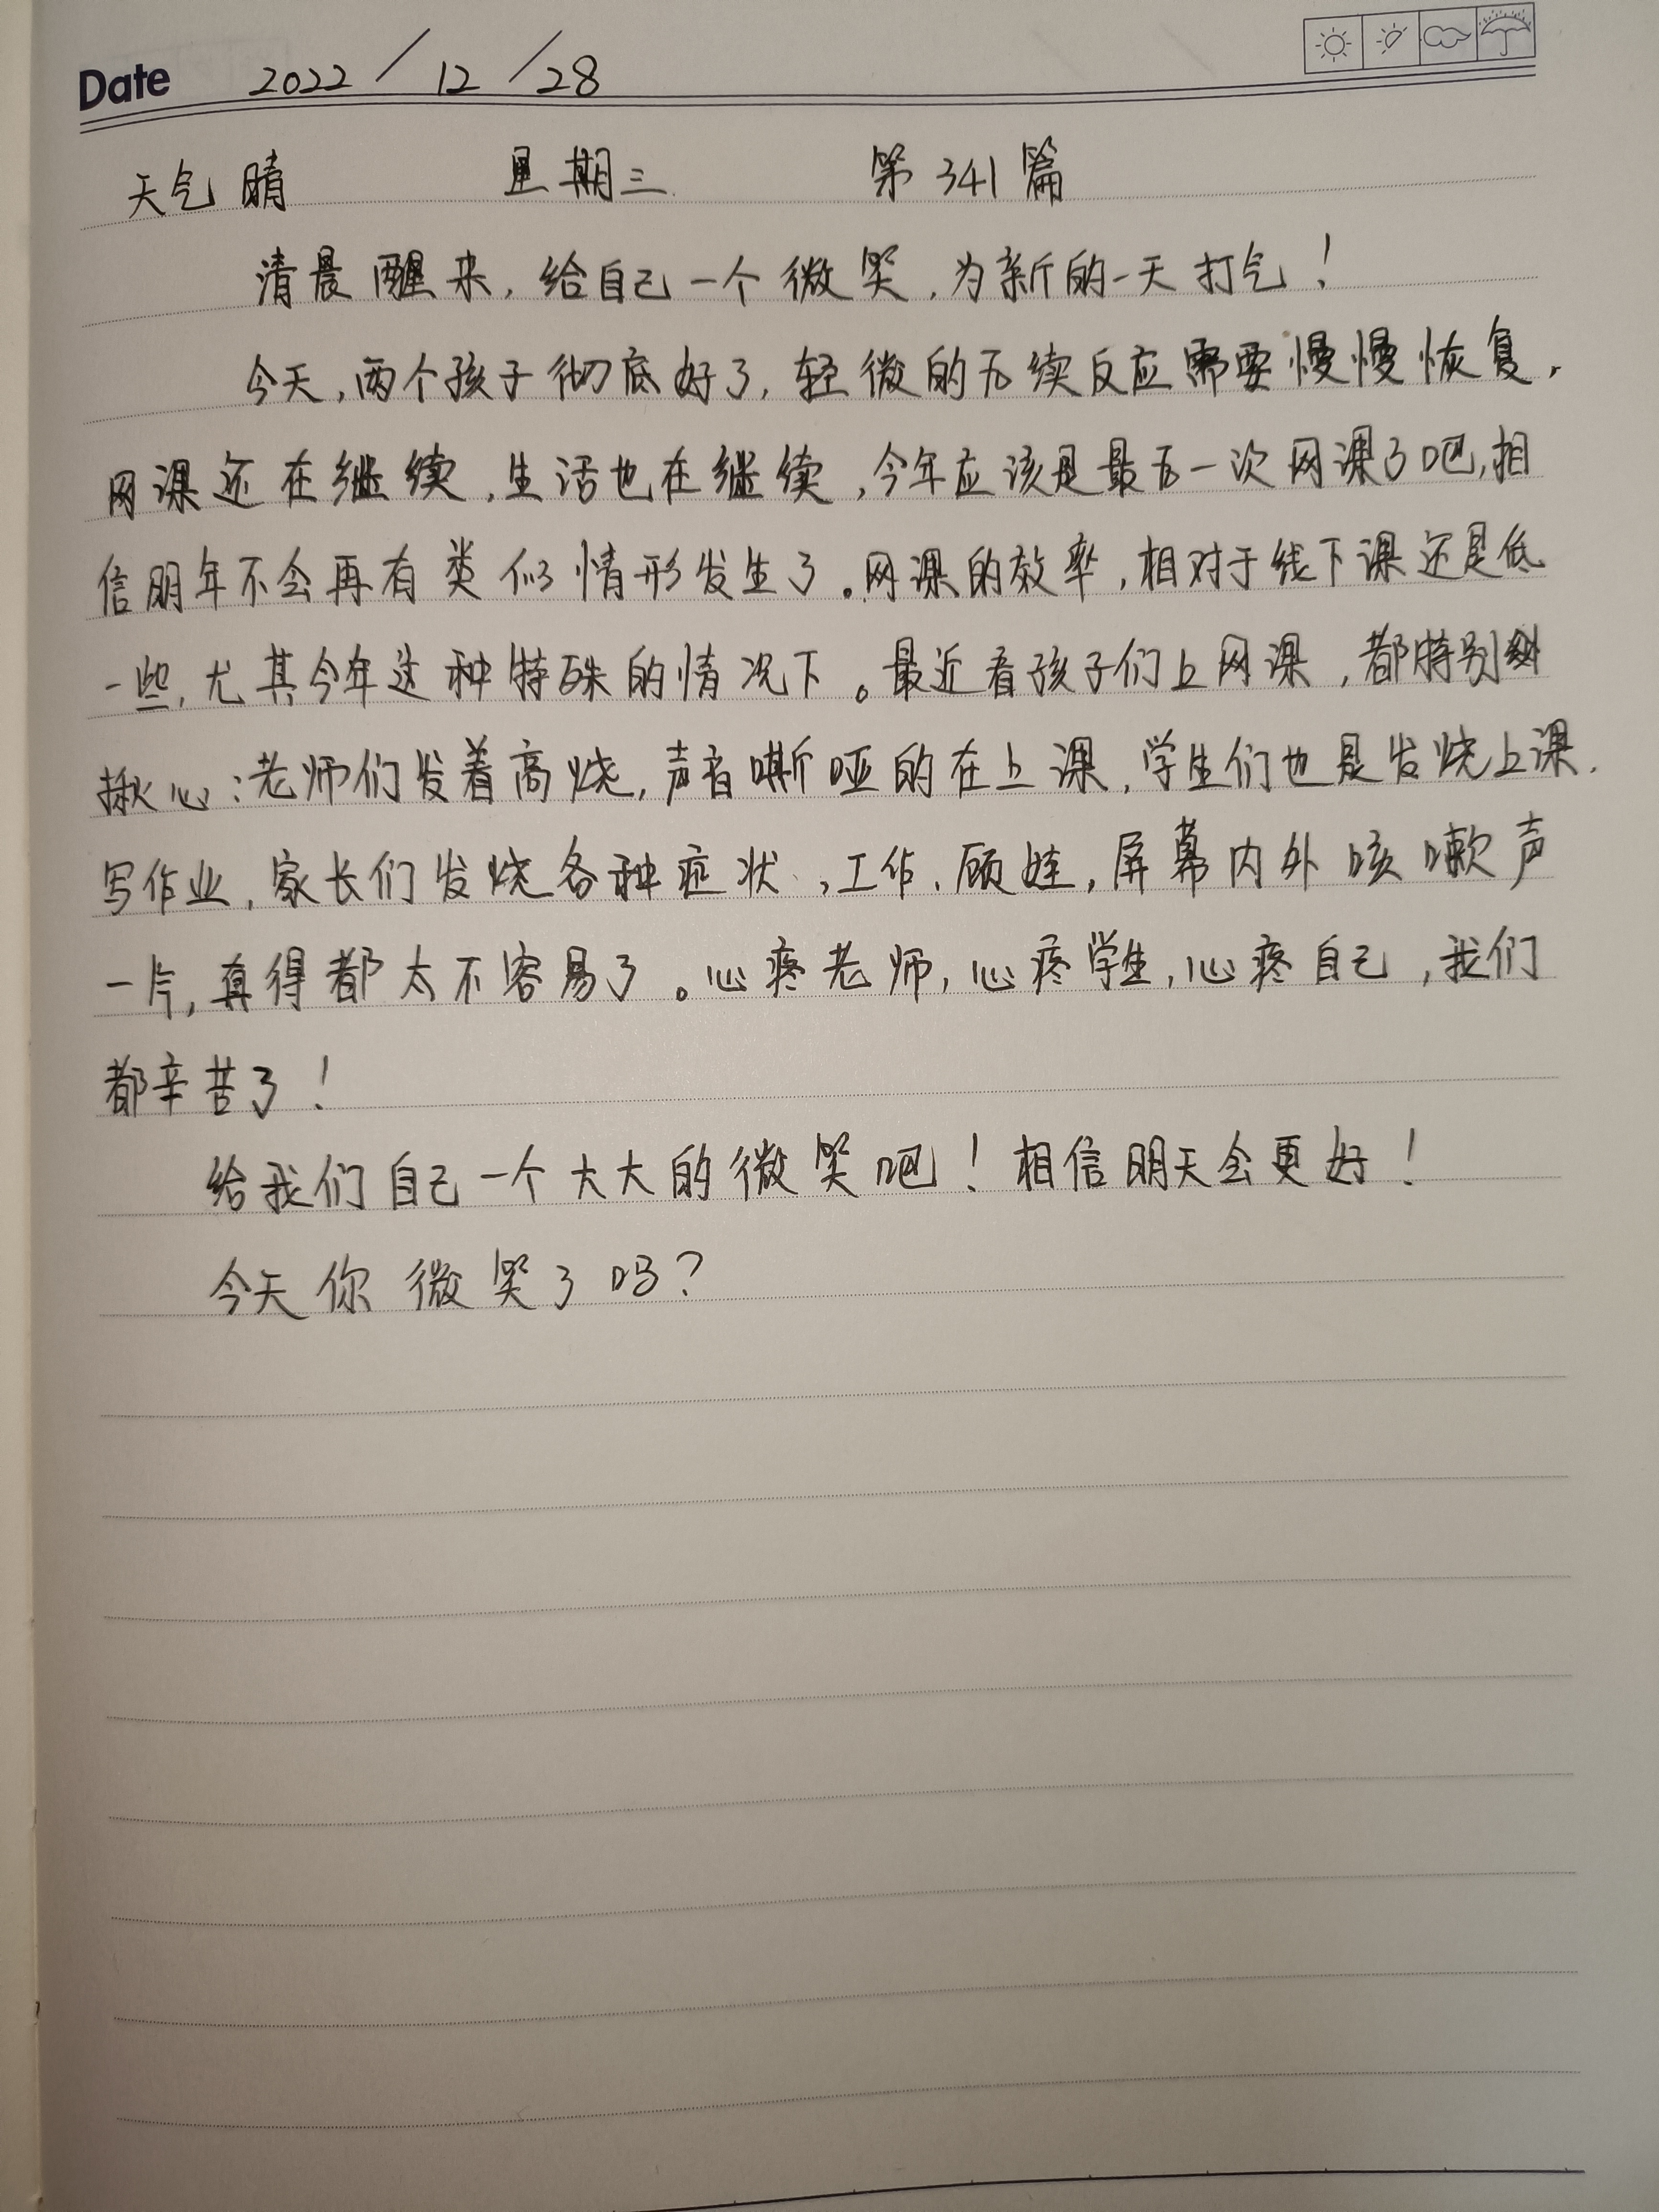 Date 2022/12/28
天气 晴 星期三 第341篇
清晨醒来,给自己一个微笑,为新的一天打气!
今天,两个孩子彻底好了,轻微的后续反应需要慢慢恢复,
网课还在继续,生活也在继续,今年应该是最后一次网课了吧,相
信明年不会再有类似情形发生了。网课的效率,相对于线下课还是低
一些,尤其今年这种特殊的情况下。最近看孩子们上网课,都特别
揪心:老师们发着高烧,声音嘶哑的在上课,学生们也是发烧上课、
写作业,家长们发烧各种症状、,工作、顾娃,屏幕内外咳嗽声
一片,真得都太不容易了。心疼老师,心疼学生,心疼自己,我们
都辛苦了!
给我们自己一个大大的微笑吧!相信明天会更好!
今天你微笑了吗?